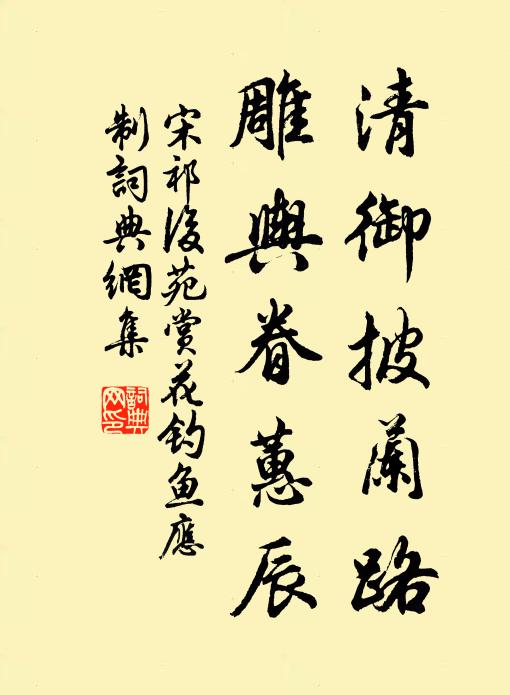 清御披蘭路
雕輿眷蕙辰
宋祁後苑賞花釣鱼應
制詞典網集
詞典网印